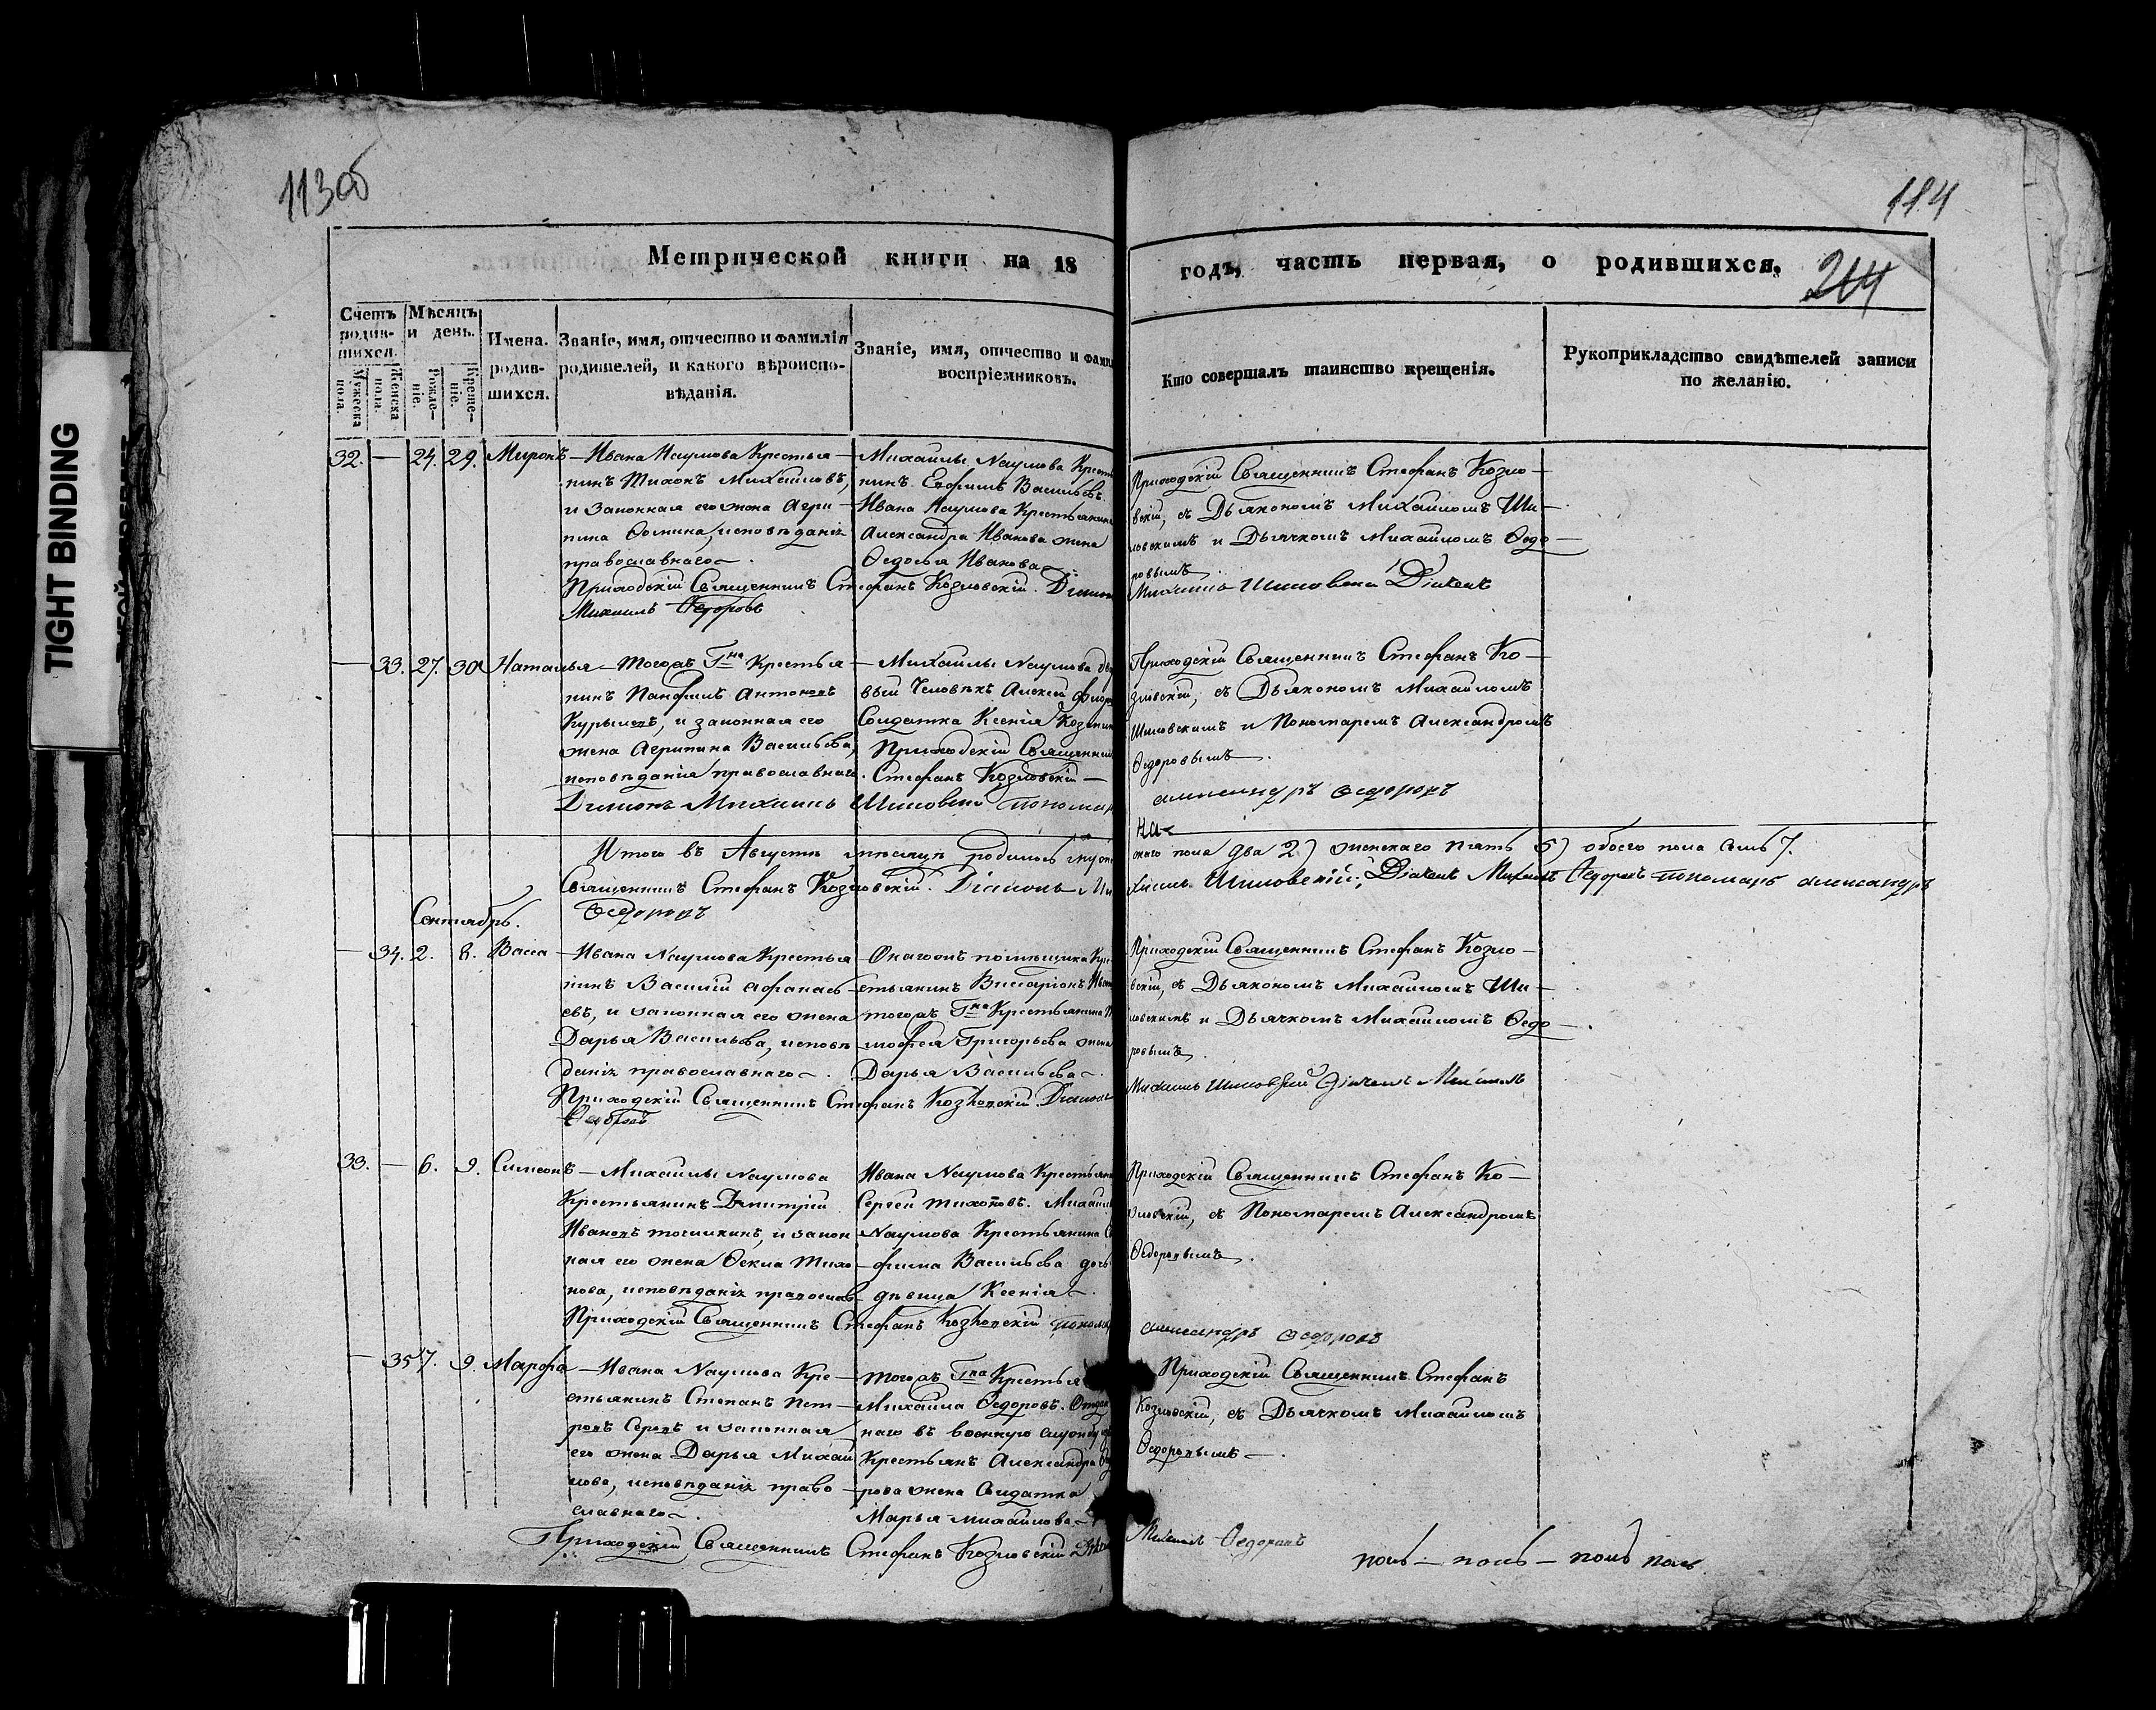 113об
114
Метрической книги на 18 годъ, часть первая, о родившихся.
244
Счетъ родив-шихся.
Мужеска пола.
Женска пола.
Мѣсяцъ и день.
Рожде-ніе.
Креще-ніе.
Имена родив-шихся.
Званіе, имя, отчество и фамилія
родителей, и какого вѣроиспо-
вѣданія.
Званіе, имя, отчество и фами
воспріемниковъ.
Кто совершалъ таинство крещенія.
Рукоприкладство свидѣтелей записи
по желанію.
32. — 24. 29. Миронъ
Ивана Наумова Крестья-
нинъ Тихонъ Михайловъ,
и законная его жена Агри-
пина Фомина, исповѣданія
православнаго.
Михайлы Наумова Крест
нинъ Ефимъ Васильевъ.
Ивана Наумова Крестьянина
Александра Иванова жена
Федосья Иванова.
Приходскій Священникъ Стефанъ Козло-
вскій, съ Дьякономъ Михаиломъ Ши-
ловскимъ и Дьячкомъ Михаиломъ Федо-
ровымъ.
Приходскій Священникъ Стефанъ Козловскій. Діаконъ Михаилъ Шиловскій Дiячекъ
Михаилъ Федоровъ
— 33. 27. 30 Наталья
Того жъ Гна Крестья-
нинъ Панфилъ Антоновъ
Курылевъ, и законная его
жена Агрипина Васильева,
исповѣданія православнаго.
Михайлы Наумова дво
вый Человѣкъ Алексей Фиор
Солдатка Ксенія Козмин
Приходскій Священникъ
Стефанъ Козловскій —
Приходскій Священникъ Стефанъ Ко-
зловскій, съ Дьякономъ Михаиломъ
Шиловскимъ и Пономаремъ Александромъ
Федоровымъ.
Діаконъ Михаилъ Шиловскій пономар
александръ Федоровъ
Итого въ Августѣ мѣсяцѣ родилось муже
скаго пола два 2) женскаго пять 5) обоего пола семь 7.
Священникъ Стефанъ Козловскій. Діаконъ Михаилъ Шиловскій, Дiячекъ Михаилъ Федоровъ пономарь александръ
Федоровъ
Сентябрь.
— 34. 2. 8. Васса
Ивана Наумова Крестья-
нинъ Василий Афанась-
евъ, и законная его жена
Дарья Васильева, исповѣ-
данія православнаго.
Онагожъ помѣщика Кре
стьянинъ Висаріонъ Иван
того жъ Гна Крестьянина
мофея Григорьева жена
Дарья Васильева.
Приходскій Священникъ Стефанъ Козло-
вскій, съ Дьякономъ Михаиломъ Ши-
ловскимъ и Дьячкомъ Михаиломъ Федо-
ровымъ.
Приходскій Священникъ Стефанъ Козловскій. Діаконъ Михаилъ Шиловскій Дiячекъ Михаилъ
Федоровъ
33. — 6. 9. Симеонъ
Михайлы Наумова
Крестьянинъ Дмитрій
Ивановъ точилкинъ, и закон
ная его жена Фекла Тихо-
нова, исповѣданія православ
Ивана Наумова Крестьяни
Сергей тихоновъ. Михайлы
Наумова Крестьянина
фима Васильева дочь
дѣвица Ксенія.
Приходскій Священникъ Стефанъ Ко-
зловскій, съ Пономаремъ Александромъ
Федоровымъ.
Приходскій Священникъ Стефанъ Козловскій пономар
александръ Федоровъ
— 35 7. 9. Марфа
Ивана Наумова Кре-
стьянинъ Степанъ Пет-
ровъ Серовъ и законная
его жена Дарья Михай
лова, исповѣданія право-
славнаго.
того жъ Гна Крестья
Михаила Федоровъ. Отдан
наго въ военную службу
Крестьянъ Александра Фе
рова жена Солдатка
Марья михайлова.
Приходскій Священникъ Стефанъ
Козловскій, съ Дьячкомъ Михаиломъ
Федоровымъ.
Приходскій Священникъ Стефанъ Козловскій
Михаилъ Федоровъ
TIGHT BINDING